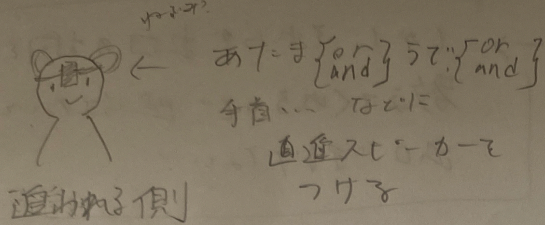 あたま{or and}うで{or and}
手首… などに
直進スピーカーを
つける
追われる側